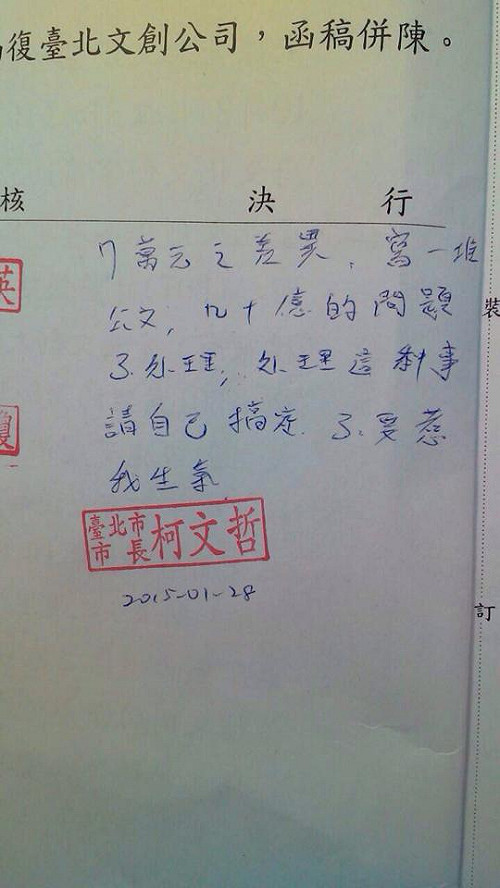 復臺北文創公司，函稿併陳。
核 決 行
7萬元之差異，寫一堆
公文，九十億的問題
不处理，处理這种事
請自己搞定.不要惹
我生氣.
臺北市
市長 柯文哲
2015-01-28
英
裝
訂